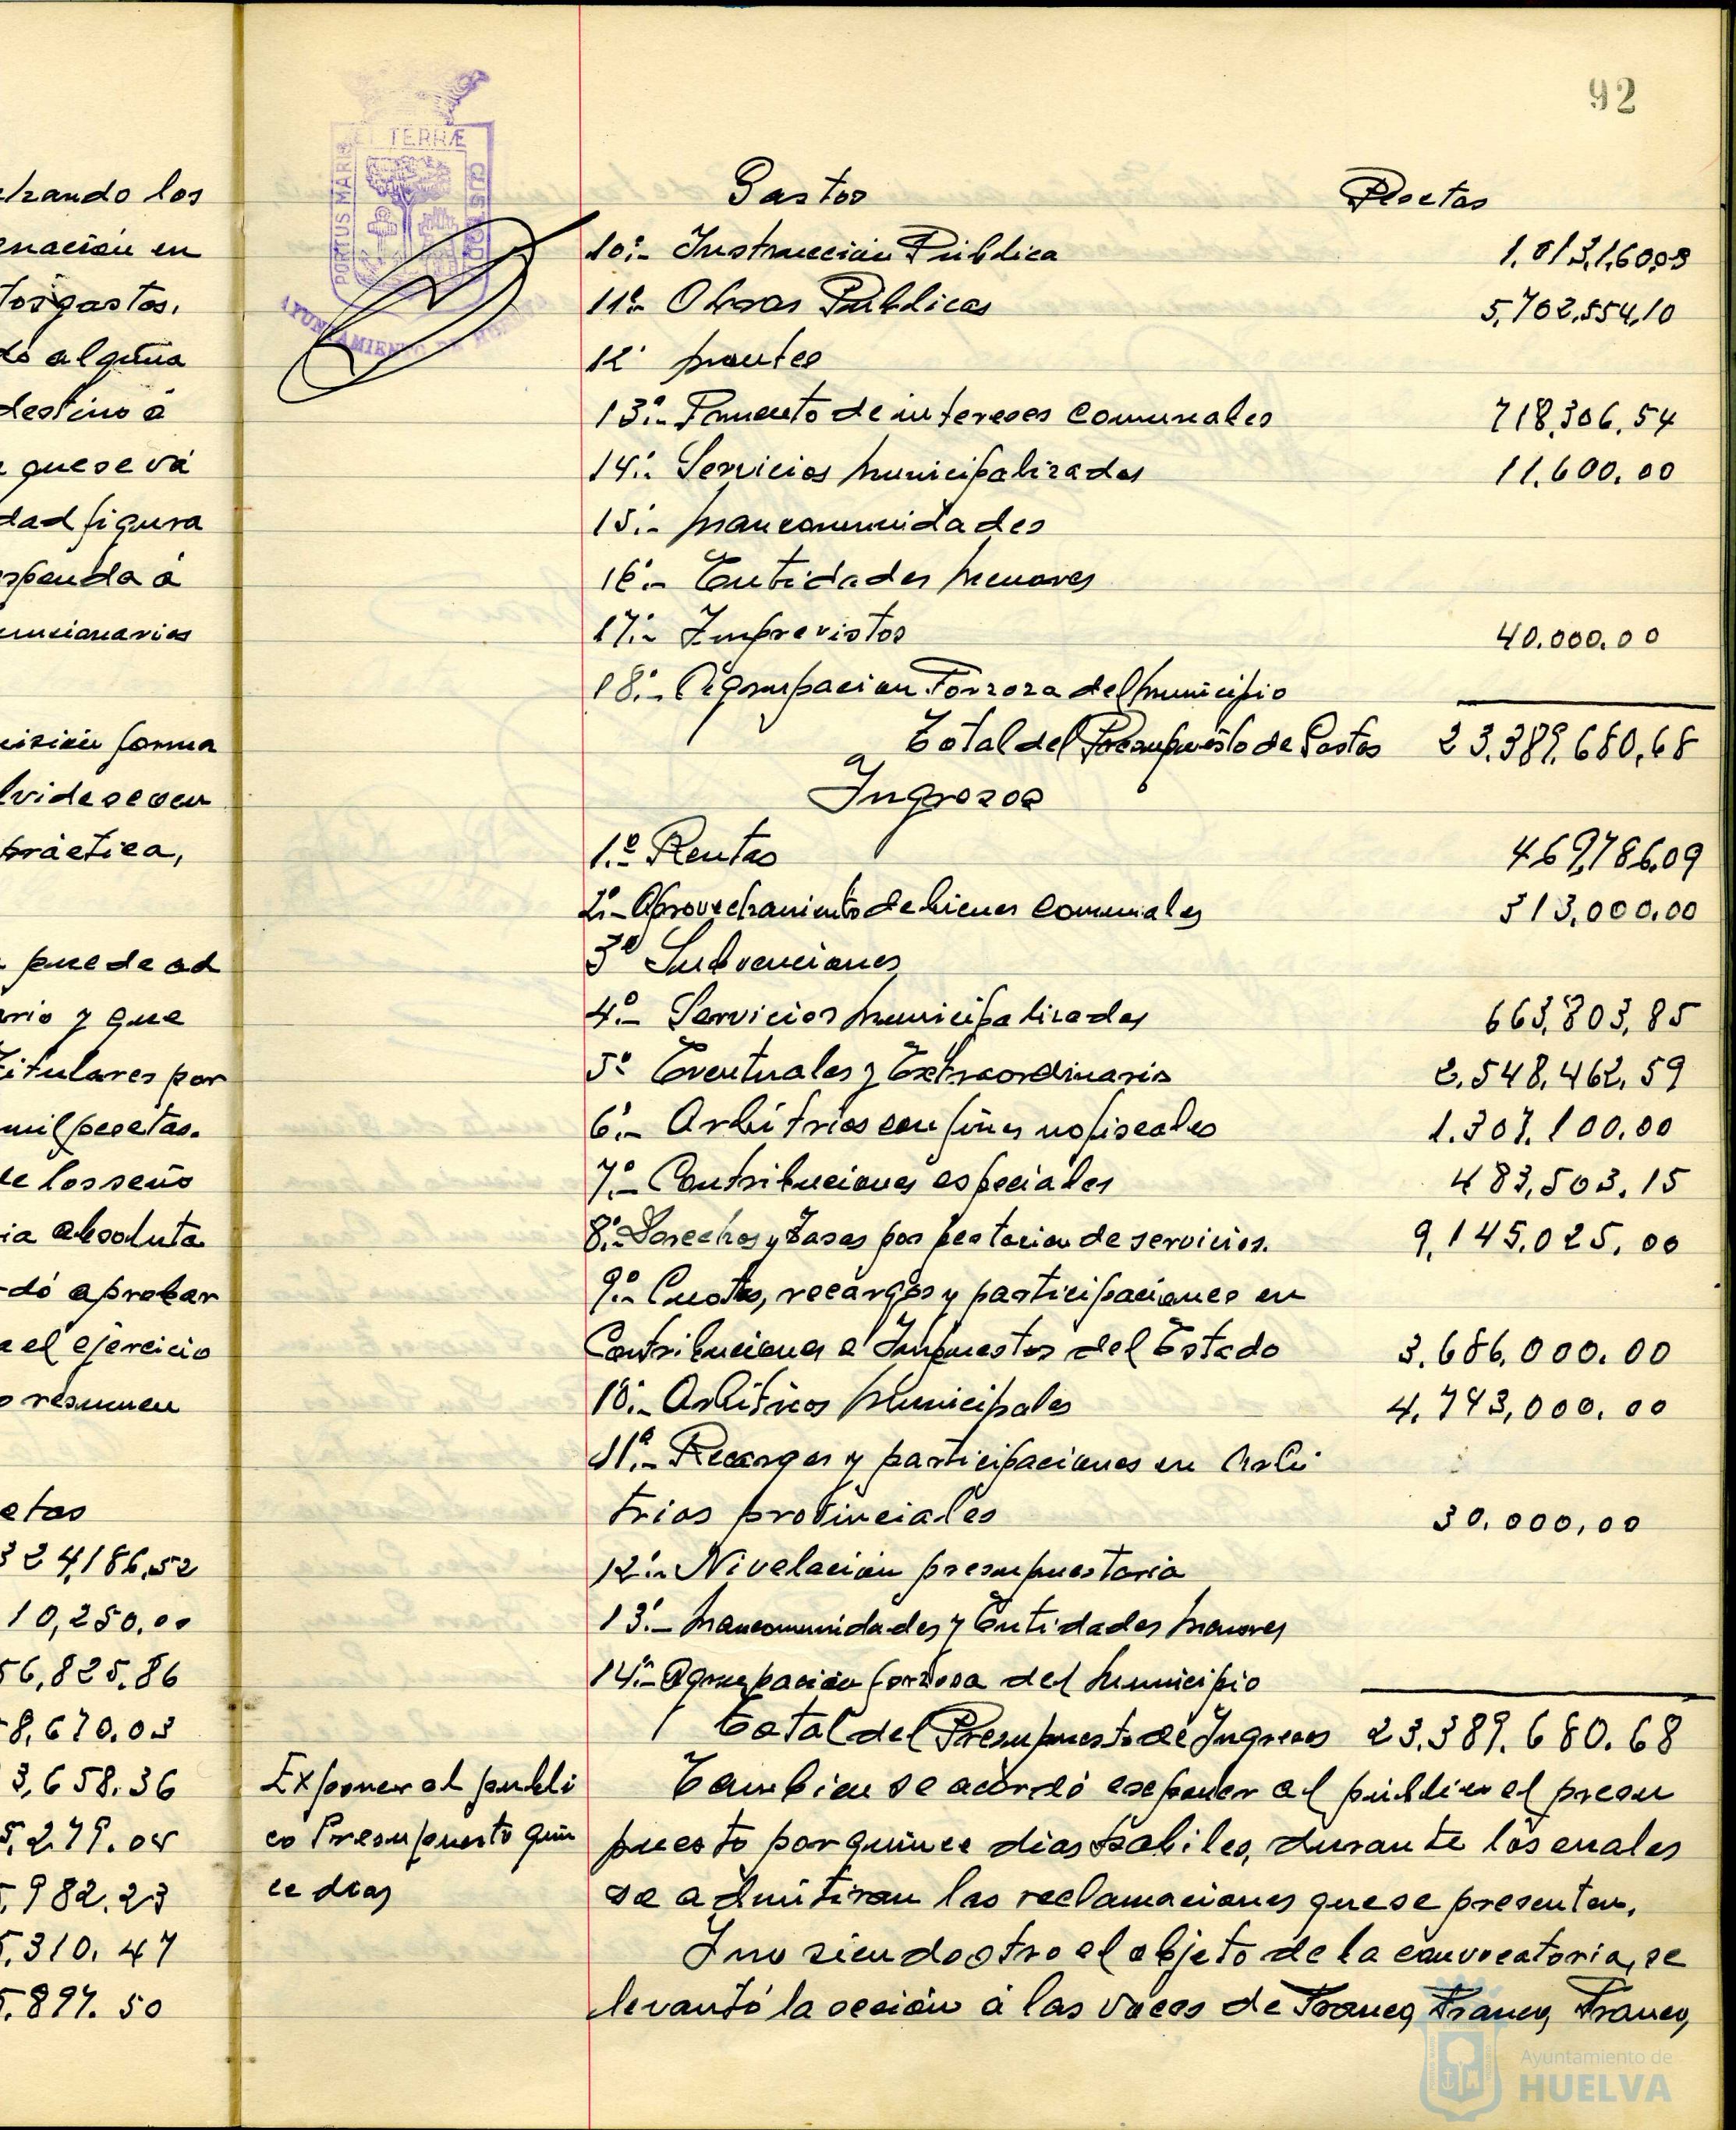 92
PORTUS MARIS ET TERRÆ CUSTODIA
AYUNTAMIENTO DE HUELVA
los
en
gastos.
alguna
destino á
que se vá
figura
á
forma
práctica,
puede ad
y que
Titulares por
mil pesetas.
los seño
absoluta
aprobar
el ejercicio
resumen
324,186,52
10,250.00
56,825.86
8,670.03
3,658.36
5,279.05
982.23
310.47
897.50
Gastos Pesetas
10º.- Instruccion Pública
11º.- Obras Públicas 5,702,554,10
12º montes
13º.- Fomento de intereses Comunales 718,306,54
14º.- Servicios municipalizados 11.600.00
15º.- mancomunidades
16º.- Entidades menores
17º.- Imprevistos 40.000.00
18º.- Agrupacion Forzoza del municipio
Total del Presupuesto de Gastos 23.389.680,68
Ingresos
1.º Rentas 469,786,09
2º.- Aprovechamiento de bienes Comunales 313,000,00
3º Subvenciones
4º.- Servicios municipalizados 663,803,85
5º Eventuales y Extraordinario 2.548,462,59
6º.- Arbitrios con fines no fiscales 1.307.100.00
7º.- Contribuciones especiales 483,503.15
8º.- Derechos y Tasas por pestacion de servicios. 9,145.025,00
9º.- Cuotas, recargos y participaciones en
Contribuciones e Impuestos del Estado 3.686,000.00
10º.- Arbitrios municipales 4,743,000.00
11º.- Recargos y participaciones en Arbi
trios provinciales 30.000,00
12º.- Nivelación presupuestaria
13º.- mancomunidades y Entidades menores
14º.- Agrupacion forzosa del municipio
Total del Presupuesto de Ingresos 23.389.680.68
Exponer al publi
co Presupuesto quin
ce dias
Tambien se acordó exponer al público el presu
puesto por quince dias habiles, durante los cuales
se admitiran las reclamaciones que se presenten.
I no siendo otro el objeto de la convocatoria, se
levantó la seción á las voces de Franco, Franco, Franco,
Ayuntamiento de
HUELVA